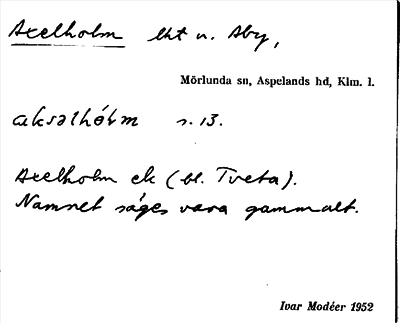 Axelholm lht u. Aby,
Mörlunda sn, Aspelands hd, Klm. l.
aksəlhóm s. 13.
Axelholm ek (bl. Tveta).
Namnet säges vara gammalt.
Ivar Modéer 1952